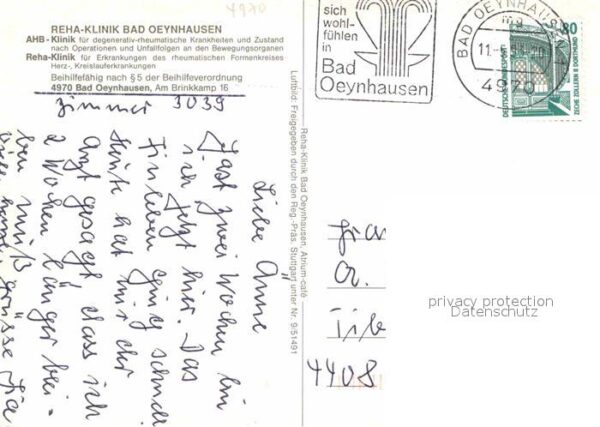 4970
REHA-KLINIK BAD OEYNHAUSEN
AHB-Klinik für degenerativ-rheumatische Krankheiten und Zustand
nach Operationen und Unfallfolgen an den Bewegungsorganen
Reha-Klinik für Erkrankungen des rheumatischen Formenkreises
Herz-, Kreislauferkrankungen
Beihilfefähig nach § 5 der Beihilfeverordnung
4970 Bad Oeynhausen, Am Brinkkamp 16
Zimmer 3039
Liebe Anne
Fast zwei Wochen bin
ich jetzt hier. Das
Einleben ging schnell
Heute hat mir der
Arzt gesagt dass ich
2 Wochen länger blei-
ben muß
Grüsse
Reha-Klinik Bad Oeynhausen, Atrium-café
Luftbild: Freigegeben durch den Reg.-Präs. Stuttgart unter Nr. 9/51491
sich
wohl-
fühlen
in
Bad
Oeynhausen
BAD OEYNHAUSEN
ma
11.-5.
4970
80
DEUTSCHE BUNDESPOST
ZECHE ZOLLERN II DORTMUND
Frau
A.
4408
privacy protection
Datenschutz